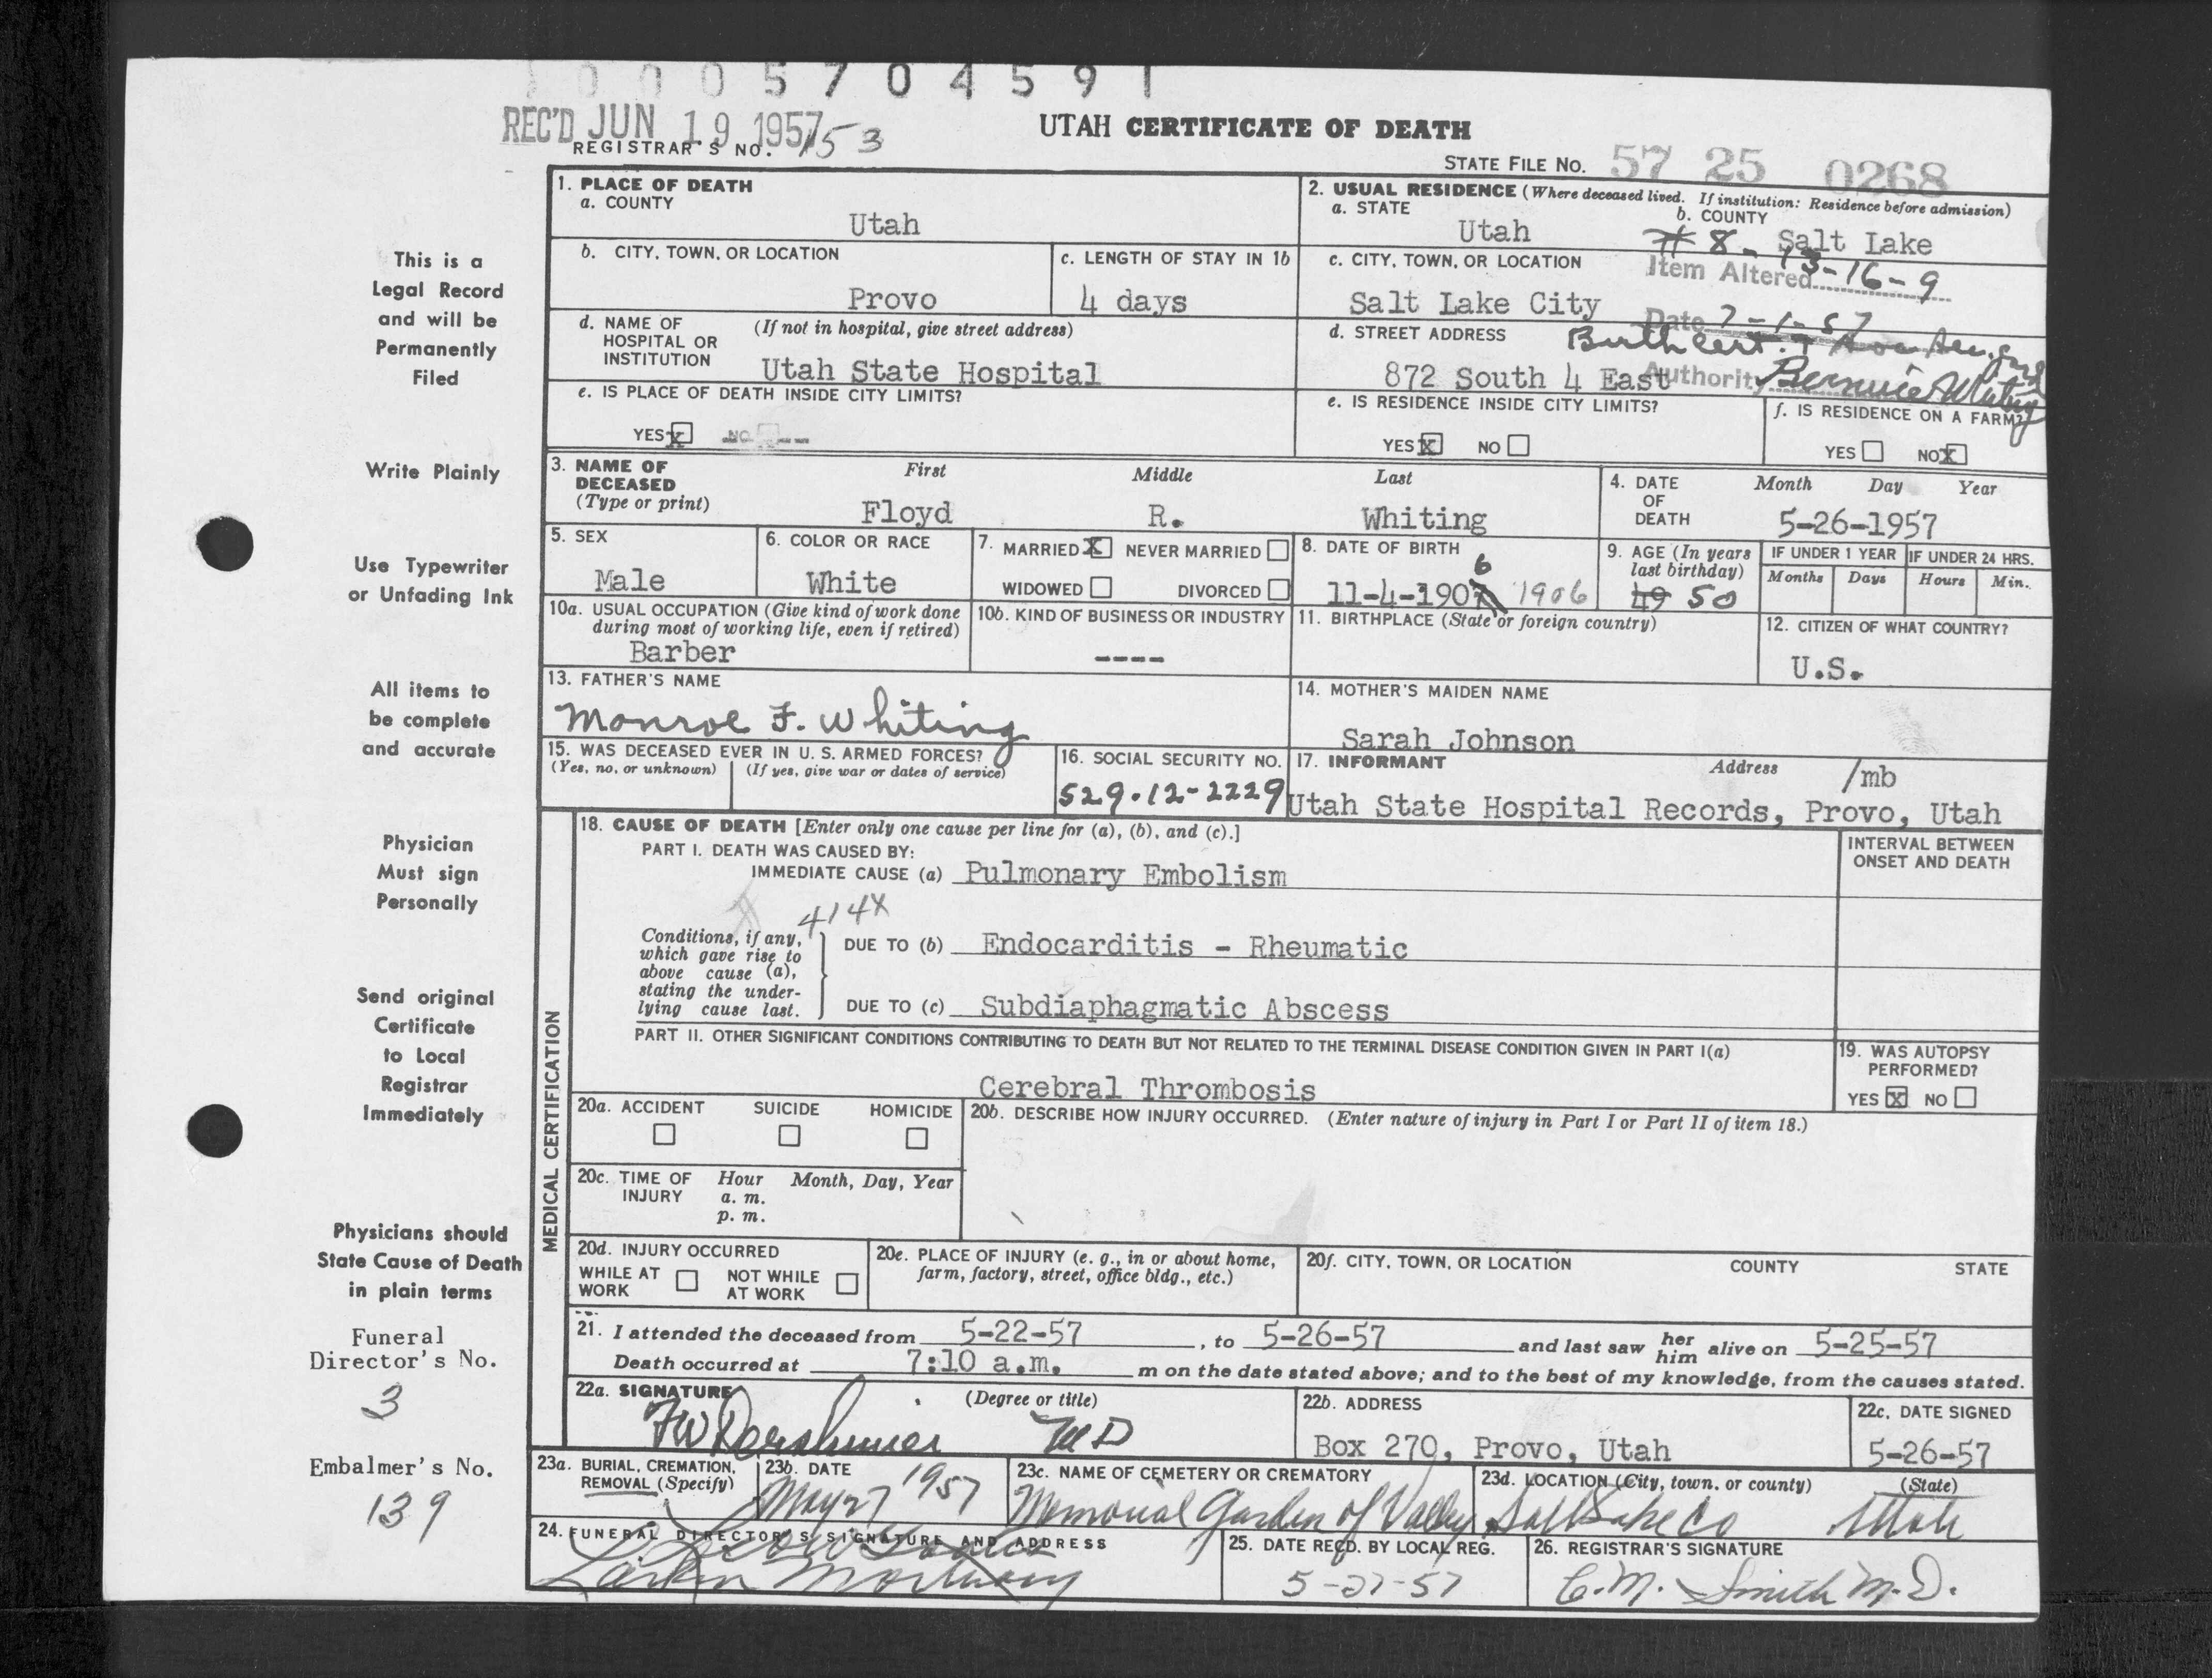 0 0 0 5 7 0 4 5 9 1
REC'D JUN 19 1957
REGISTRAR'S NO. 153
UTAH CERTIFICATE OF DEATH
STATE FILE NO. 57 25 0268
This is a
Legal Record
and will be
Permanently
Filed
Write Plainly
Use Typewriter
or Unfading Ink
All items to
be complete
and accurate
Physician
Must sign
Personally
Send original
Certificate
to Local
Registrar
Immediately
Physicians should
State Cause of Death
in plain terms
Funeral
Director's No.
3
Embalmer's No.
139
1. PLACE OF DEATH
a. COUNTY
Utah
2. USUAL RESIDENCE (Where deceased lived. If institution: Residence before admission)
a. STATE
Utah
b. COUNTY
Salt Lake
# 8-13-16-9
Item Altered
Date 7-1-57
Birth Cert.
Authority Bernice Whiting
b. CITY, TOWN, OR LOCATION
Provo
c. LENGTH OF STAY IN 1b
4 days
c. CITY, TOWN, OR LOCATION
Salt Lake City
d. NAME OF HOSPITAL OR INSTITUTION (If not in hospital, give street address)
Utah State Hospital
d. STREET ADDRESS
872 South 4 East
e. IS PLACE OF DEATH INSIDE CITY LIMITS?
YES X NO
e. IS RESIDENCE INSIDE CITY LIMITS?
YES X NO
f. IS RESIDENCE ON A FARM?
YES NO X
3. NAME OF DECEASED (Type or print)
First Middle Last
Floyd R. Whiting
4. DATE OF DEATH
Month Day Year
5-26-1957
5. SEX
Male
6. COLOR OR RACE
White
7. MARRIED X NEVER MARRIED
WIDOWED DIVORCED
8. DATE OF BIRTH
6
11-4-1907 1906
9. AGE (In years last birthday)
49 50
IF UNDER 1 YEAR
Months Days
IF UNDER 24 HRS.
Hours Min.
10a. USUAL OCCUPATION (Give kind of work done during most of working life, even if retired)
Barber
10b. KIND OF BUSINESS OR INDUSTRY
----
11. BIRTHPLACE (State or foreign country)
12. CITIZEN OF WHAT COUNTRY?
U.S.
13. FATHER'S NAME
Monroe F. Whiting
14. MOTHER'S MAIDEN NAME
Sarah Johnson
15. WAS DECEASED EVER IN U. S. ARMED FORCES?
(Yes, no, or unknown) (If yes, give war or dates of service)
16. SOCIAL SECURITY NO.
529-12-2229
17. INFORMANT Address /mb
Utah State Hospital Records, Provo, Utah
MEDICAL CERTIFICATION
18. CAUSE OF DEATH [Enter only one cause per line for (a), (b), and (c).]
PART I. DEATH WAS CAUSED BY:
IMMEDIATE CAUSE (a) Pulmonary Embolism
INTERVAL BETWEEN ONSET AND DEATH
414X
Conditions, if any, which gave rise to above cause (a), stating the underlying cause last.
DUE TO (b) Endocarditis - Rheumatic
DUE TO (c) Subdiaphagmatic Abscess
PART II. OTHER SIGNIFICANT CONDITIONS CONTRIBUTING TO DEATH BUT NOT RELATED TO THE TERMINAL DISEASE CONDITION GIVEN IN PART I(a)
Cerebral Thrombosis
19. WAS AUTOPSY PERFORMED?
YES X NO
20a. ACCIDENT SUICIDE HOMICIDE
20b. DESCRIBE HOW INJURY OCCURRED. (Enter nature of injury in Part I or Part II of item 18.)
20c. TIME OF INJURY Hour Month, Day, Year
a. m.
p. m.
20d. INJURY OCCURRED
WHILE AT WORK NOT WHILE AT WORK
20e. PLACE OF INJURY (e. g., in or about home, farm, factory, street, office bldg., etc.)
20f. CITY, TOWN, OR LOCATION COUNTY STATE
21. I attended the deceased from 5-22-57, to 5-26-57 and last saw her him alive on 5-25-57
Death occurred at 7:10 a.m. m on the date stated above; and to the best of my knowledge, from the causes stated.
22a. SIGNATURE (Degree or title)
MD
22b. ADDRESS
Box 270, Provo, Utah
22c. DATE SIGNED
5-26-57
23a. BURIAL, CREMATION, REMOVAL (Specify)
23b. DATE
May 27 1957
23c. NAME OF CEMETERY OR CREMATORY
Memorial Garden of Valley
23d. LOCATION (City, town, or county) (State)
Salt Lake Co Utah
24. FUNERAL DIRECTOR'S SIGNATURE AND ADDRESS
Larkin Mortuary
25. DATE RECD. BY LOCAL REG.
5-27-57
26. REGISTRAR'S SIGNATURE
C.M. Smith M.D.